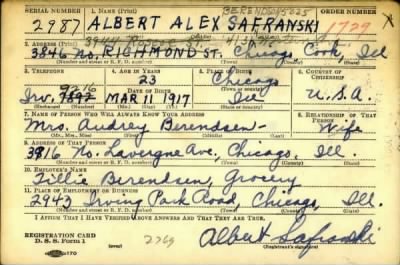 SERIAL NUMBER 1. NAME (Print) BERENDSEN 5025
2987 ALBERT ALEX SAFRANSKI 1729
2. ADDRESS (Print)
3846 No. RICHMOND ST. Chicago Cook, Ill
3. TELEPHONE 4. AGE IN YEARS 5. PLACE OF BIRTH 6. COUNTRY OF CITIZENSHIP
23 Chicago
9616
Irv. DATE OF BIRTH
MAR 11 1917 U.S.A.
(Exchange) (Number) (Mo.) (Day) (Yr.) (State or county)
7. NAME OF PERSON WHO WILL ALWAYS KNOW YOUR ADDRESS 8. RELATIONSHIP OF THAT PERSON
Mrs. Audrey Berendsen Wife
(Mr., Mrs., Miss) (First) (Middle) (Last)
9. ADDRESS OF THAT PERSON
3816 No. Lavergne Ave., Chicago Ill.
(Number and street or R. F. D. number) (Town) (County) (State)
10. EMPLOYER'S NAME
Tillie Berendsen, Grocery
11. PLACE OF EMPLOYMENT OR BUSINESS
2943 Irving Park Road, Chicago, Ill.
(Number and street or R. F. D. number) (Town) (County) (State)
I AFFIRM THAT I HAVE VERIFIED ABOVE ANSWERS AND THAT THEY ARE TRUE.
REGISTRATION CARD
D. S. S. Form 1 (over) Albert Safranski
(Registrant's signature)